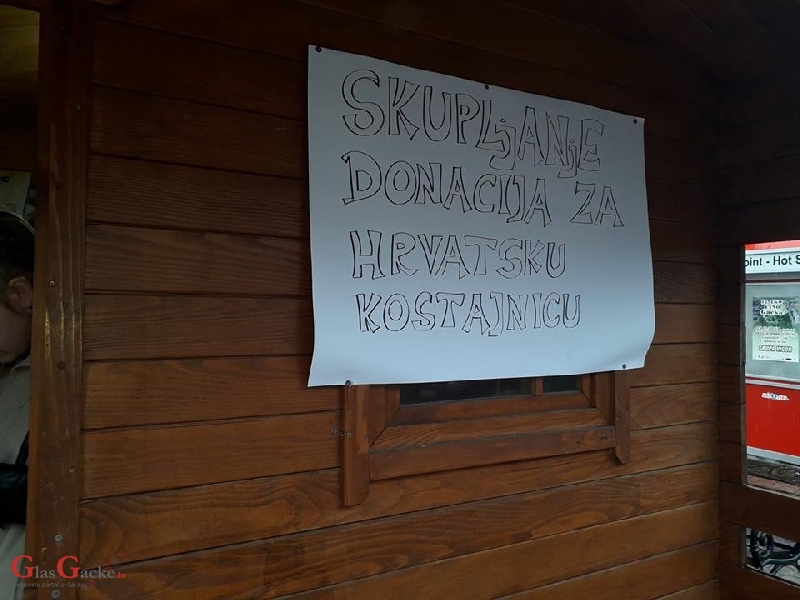 SKUPLjANjE
DONACIJA ZA
HRVATSKU
KOSTAJNICU
oint - Hot S
Gacke
GlasGacke.hr